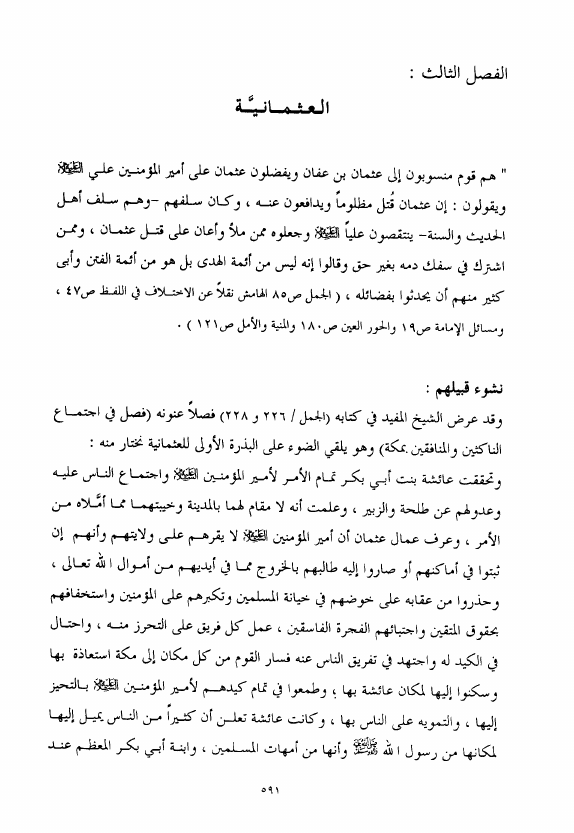 الفصل الثالث :
العثمانيَّة
" هم قوم منسوبون إلى عثمان بن عفان ويفضلون عثمان على أمير المؤمنين علي عليه السلام
ويقولون : إن عثمان قُتل مظلوماً ويدافعون عنه ، وكان سلفهم -وهم سلف أهل
الحديث والسنة- ينتقصون علياً عليه السلام وجعلوه ممن ملأ وأعان على قتل عثمان ، وممن
اشترك في سفك دمه بغير حق وقالوا إنه ليس من أئمة الهدى بل هو من أئمة الفتن وأبى
كثير منهم أن يحدثوا بفضائله ، ( الجمل ص٨٥ الهامش نقلاً عن الاختلاف في اللفظ ص٤٧ ،
ومسائل الإمامة ص١٩ والحور العين ص١٨٠ والمنية والأمل ص١٢١ ) .
نشوء قبيلهم :
وقد عرض الشيخ المفيد في كتابه (الجمل / ٢٢٦ و ٢٢٨) فصلاً عنونه (فصل في اجتماع
الناكثين والمنافقين بمكة) وهو يلقي الضوء على البذرة الأولى للعثمانية نختار منه :
وتحققت عائشة بنت أبي بكر تمام الأمر لأمير المؤمنين عليه السلام واجتماع الناس عليه
وعدولهم عن طلحة والزبير ، وعلمت أنه لا مقام لهما بالمدينة وخيبتهما مما أمَّلاه من
الأمر ، وعرف عمال عثمان أن أمير المؤمنين عليه السلام لا يقرهم على ولايتهم وأنهم إن
ثبتوا في أماكنهم أو صاروا إليه طالبهم بالخروج مما في أيديهم من أموال الله تعالى ،
وحذروا من عقابه على خوضهم في خيانة المسلمين وتكبرهم على المؤمنين واستخفافهم
بحقوق المتقين واجتبائهم الفجرة الفاسقين ، عمل كل فريق على التحرز منه ، واحتال
في الكيد له واجتهد في تفريق الناس عنه فسار القوم من كل مكان إلى مكة استعاذة بها
وسكنوا إليها لمكان عائشة بها ؛ وطمعوا في تمام كيدهم لأمير المؤمنين عليه السلام بالتحيز
إليها ، والتمويه على الناس بها ، وكانت عائشة تعلن أن كثيراً من الناس يميل إليها
لمكانها من رسول الله ﷺ وأنها من أمهات المسلمين ، وابنة أبي بكر المعظم عند
٥٩١